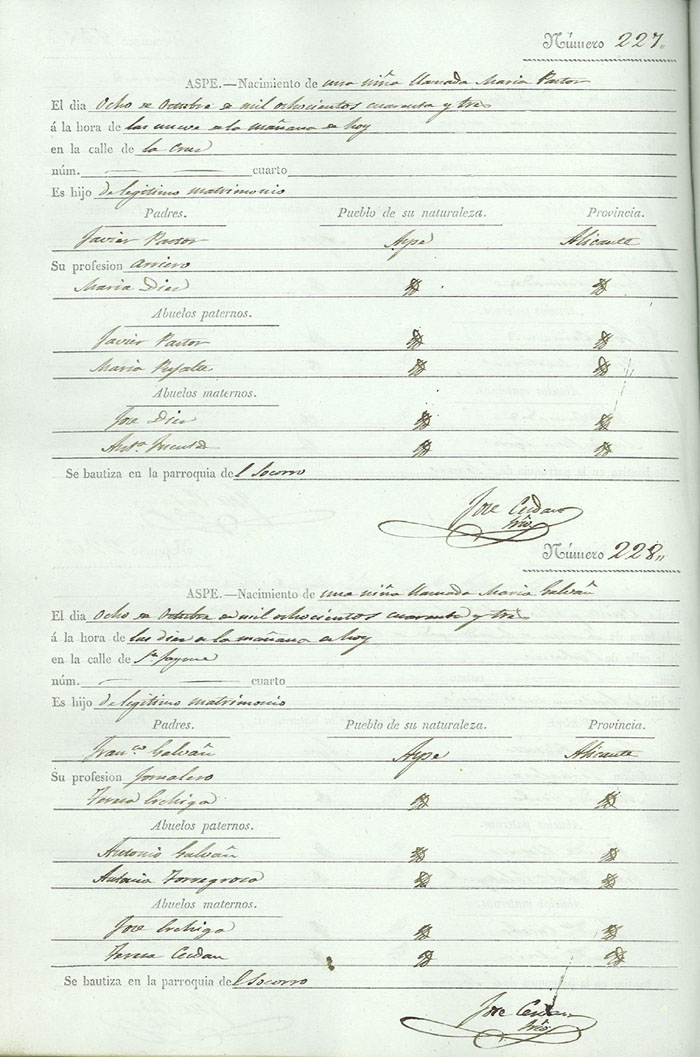 Número 227.
ASPE.—Nacimiento de una niña llamada Maria Pastor
El dia Ocho de Octubre de mil ochocientos cuarenta y tres
á la hora de las nueve de la mañana de hoy
en la calle de la Cruz
núm. cuarto
Es hijo de legitimo matrimonio
Padres. Pueblo de su naturaleza. Provincia.
Javier Pastor Aspe Alicante
Su profesion arriero
Maria Diez
Abuelos paternos.
Javier Pastor
Maria
Abuelos maternos.
Jose Diez
Antª
Se bautiza en la parroquia del Socorro
Jose Cerdan
Srio
Número 228,,
ASPE.—Nacimiento de una niña llamada Maria Galvañ
El dia Ocho de Octubre de mil ochocientos cuarenta y tres
á la hora de las diez de la mañana de hoy
en la calle de Sn Jayme
núm. cuarto
Es hijo de legitimo matrimonio
Padres. Pueblo de su naturaleza. Provincia.
Franco Galvañ Aspe Alicante
Su profesion Jornalero
Teresa
Abuelos paternos.
Antonio Galvañ
Antonia Torregrosa
Abuelos maternos.
Jose
Teresa Cerdan
Se bautiza en la parroquia del Socorro
Jose Cerdan
Srio